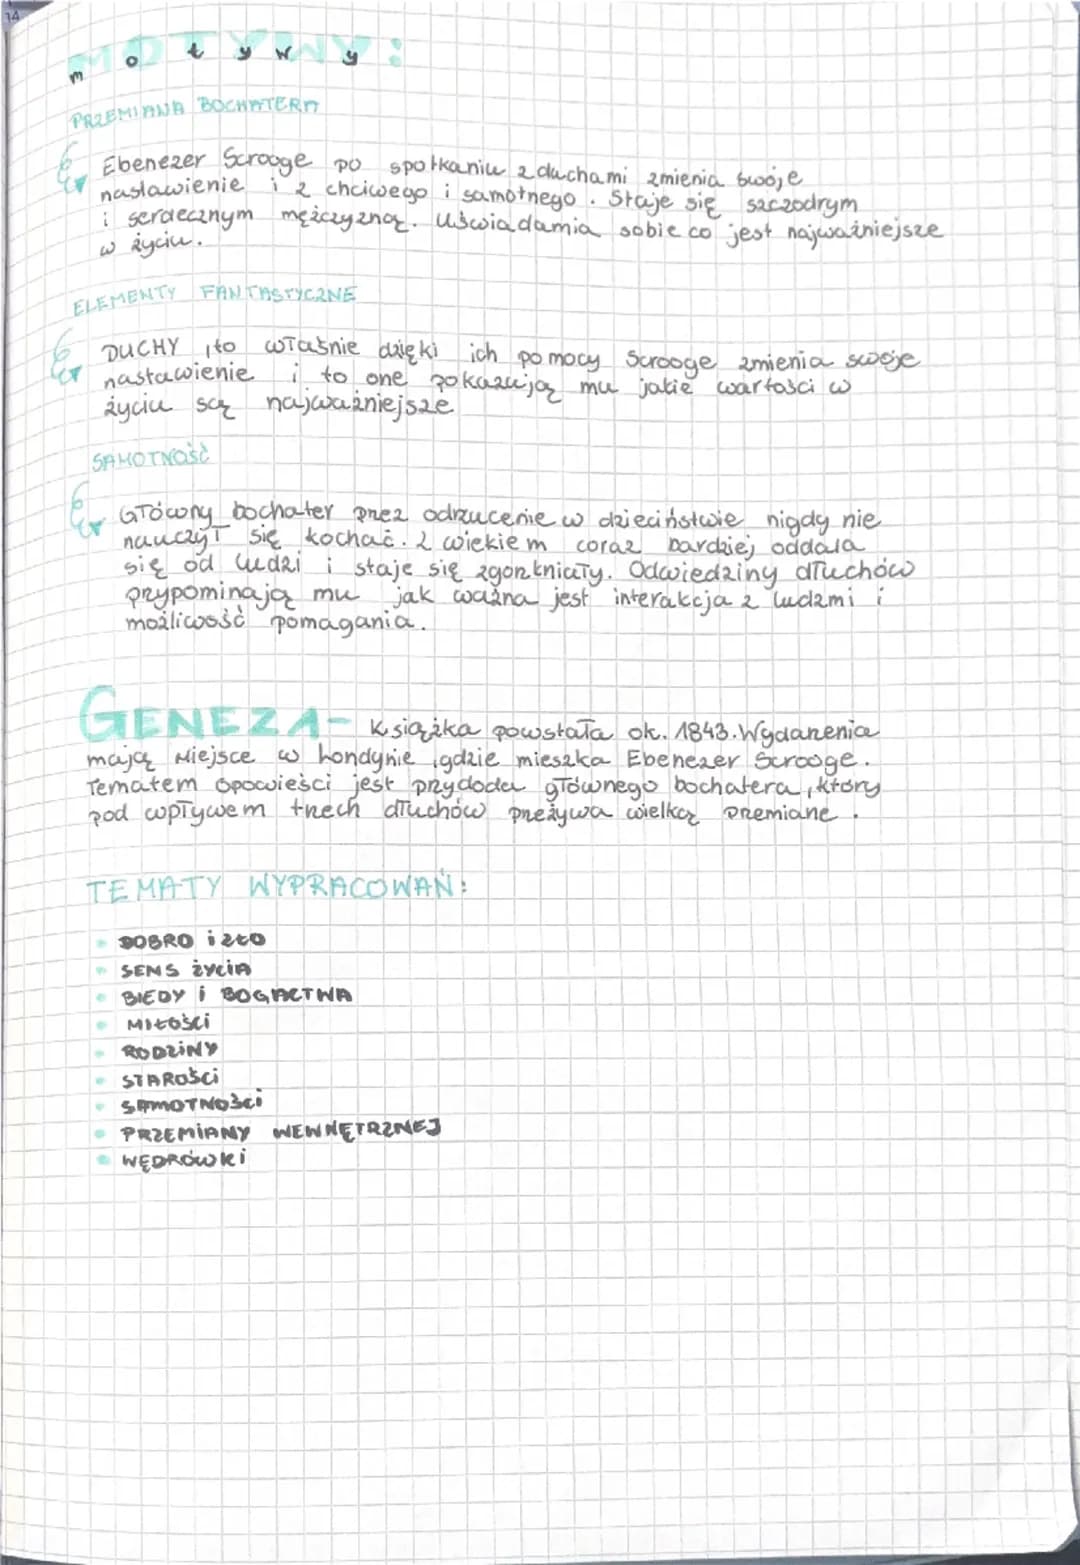 14
MOTYWY:
motywy
PRZEMIANA BOCHATERA
Ebenezer Scrooge po spotkaniu z duchami zmienia swoje
nastawienie i z chciwego i samotnego. Staje się szczodrym
i serdecznym mężczyzną. Uświadamia sobie co jest najważniejsze
w życiu.
ELEMENTY FANTASTYCZNE
DUCHY, to właśnie dzięki ich pomocy Scrooge zmienia swoje
nastawienie i to one pokazują mu jakie wartości w
życiu są najważniejsze
SAMOTNOŚĆ
Główny bochater przez odrzucenie w dzieciństwie nigdy nie
nauczył się kochać. Z wiekiem coraz bardziej oddala
się od ludzi i staje się zgorzkniały. Odwiedziny dłuchów
przypominają mu jak ważna jest interakcja z ludzmi i
możliwość pomagania.
GENEZA- Książka powstała ok. 1843. Wydarzenia
mają miejsce w Londynie, gdzie mieszka Ebenezer Scrooge.
Tematem opowieści jest przydoda głównego bochatera, który
pod wpływem trzech dłuchów przeżywa wielką przemiane.
TEMATY WYPRACOWAŃ:
DOBRO i ZŁO
SENS ŻYCIA
BIEDY i BOGACTWA
MIŁOŚCI
RODZINY
STAROŚCI
SAMOTNOŚCI
PRZEMIANY WEWNĘTRZNEJ
WĘDRÓWKI